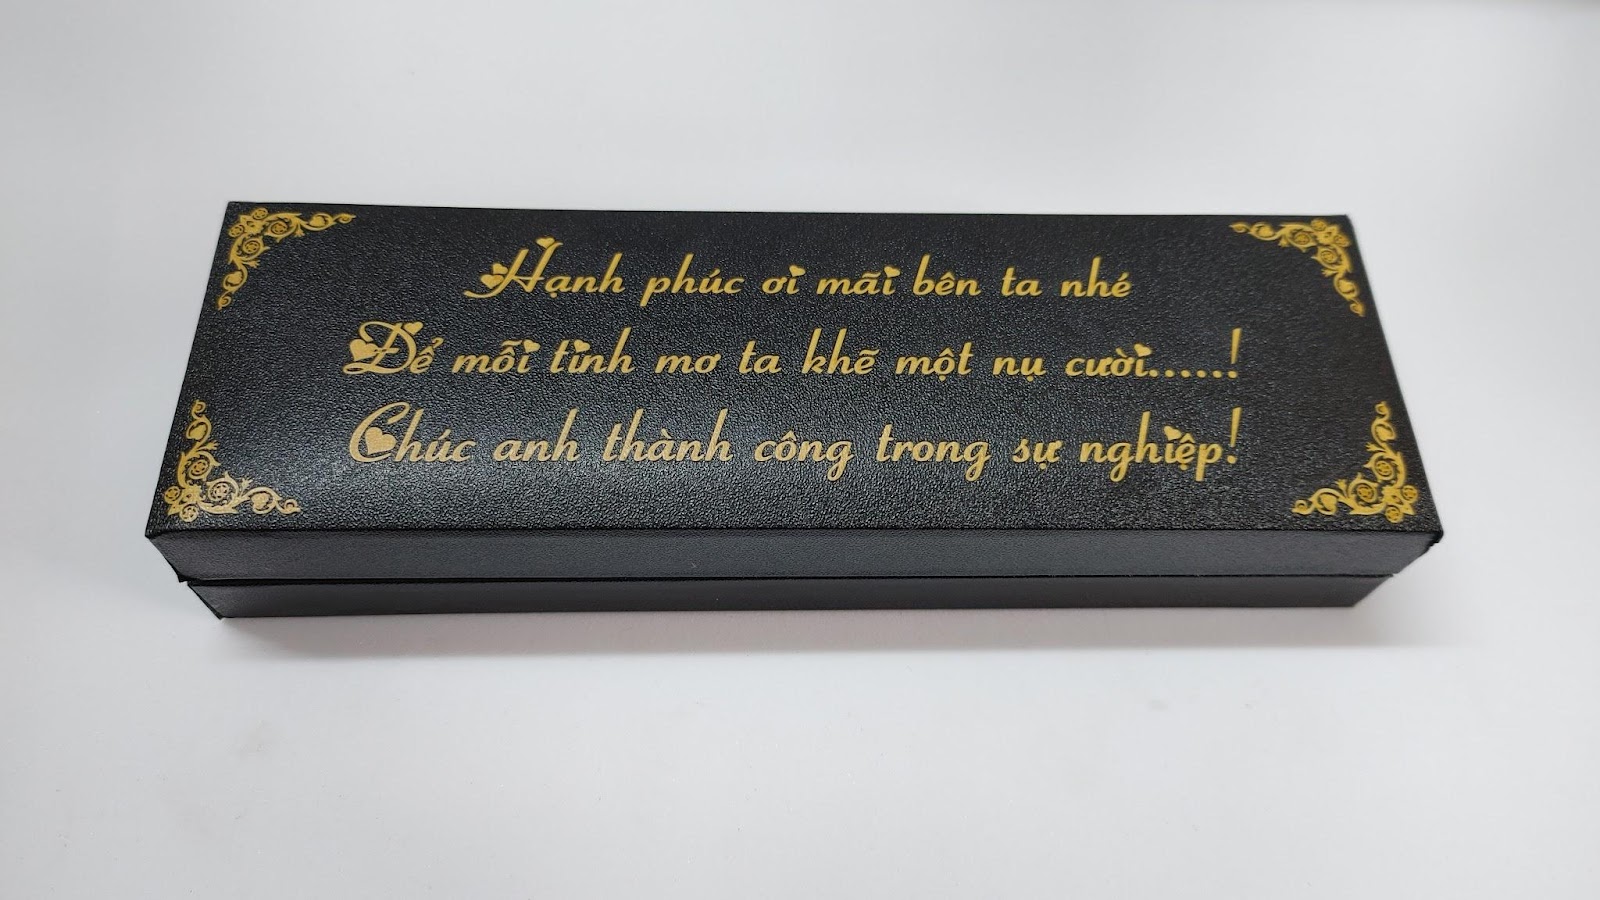 Hạnh phúc ơi mãi bên ta nhé
Để mỗi tinh mơ ta khẽ một nụ cười.....!
Chúc anh thành công trong sự nghiệp!